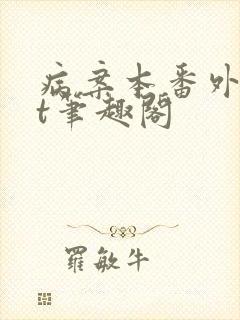 病案本番外t
t笔趣阁
羅敏牛